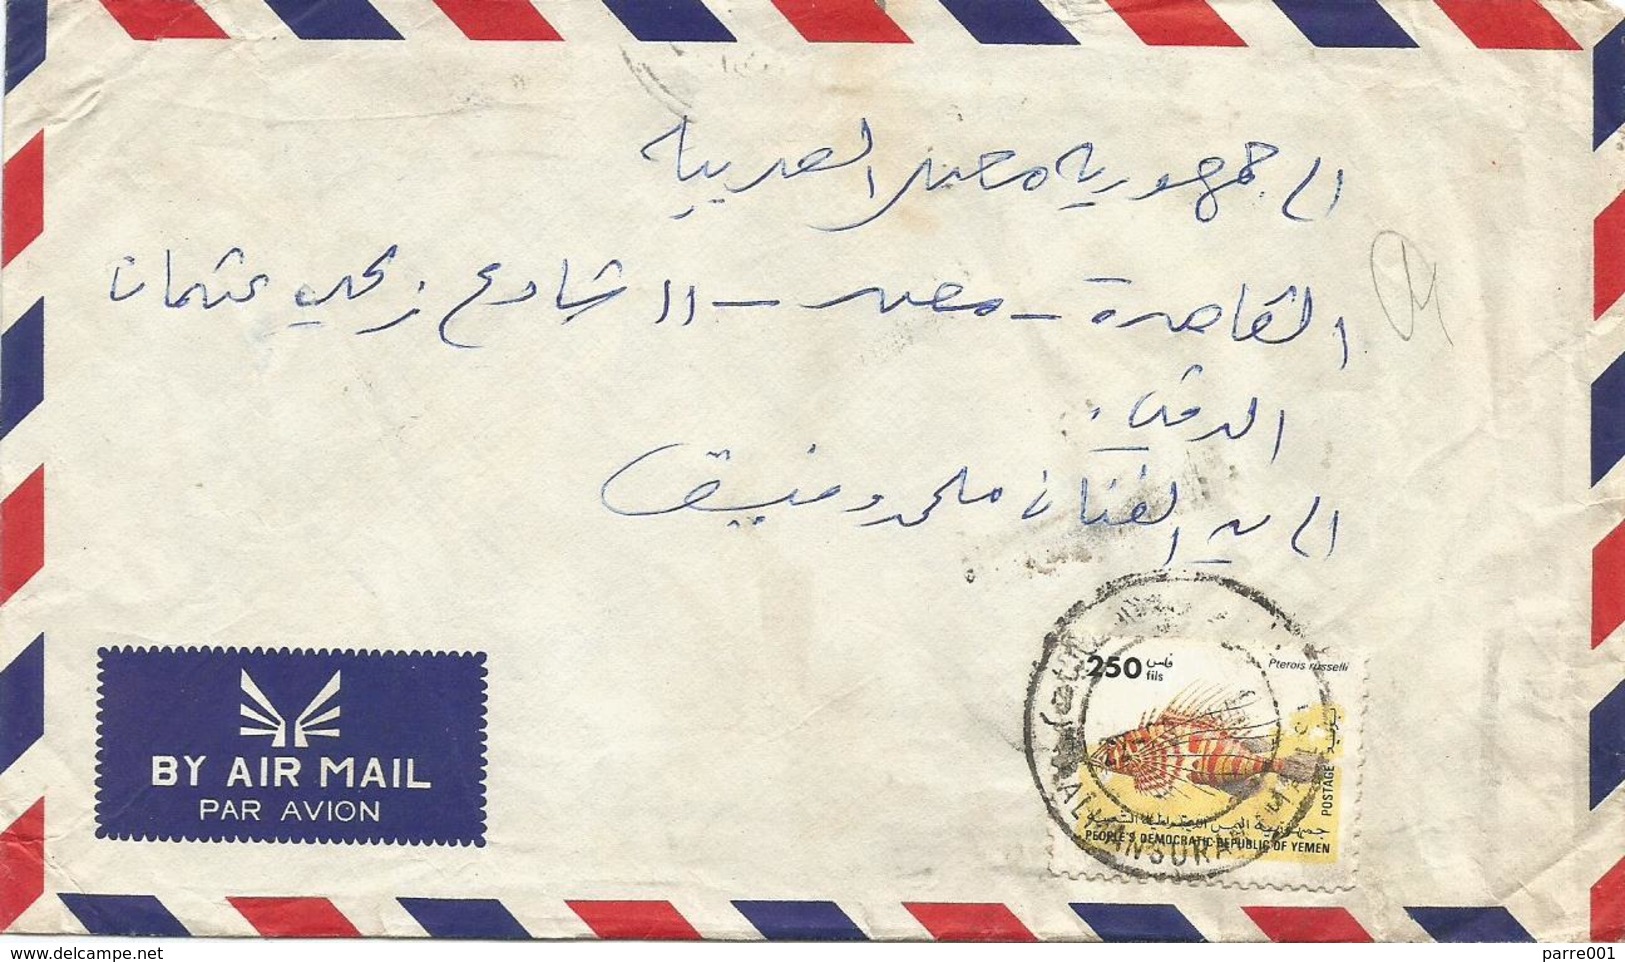 الى جمهورية مصر العربية
القاهرة - مصر - ١١ شارع زكي عثمان
الدقي
الى يد الفنان محمد وفيق
250 فلس
fils
Pterois russelli
بريد
POSTAGE
جمهورية اليمن الديمقراطية الشعبية
PEOPLE'S DEMOCRATIC REPUBLIC OF YEMEN
AL MANSURA
BY AIR MAIL
PAR AVION
delcampe.net
parre001